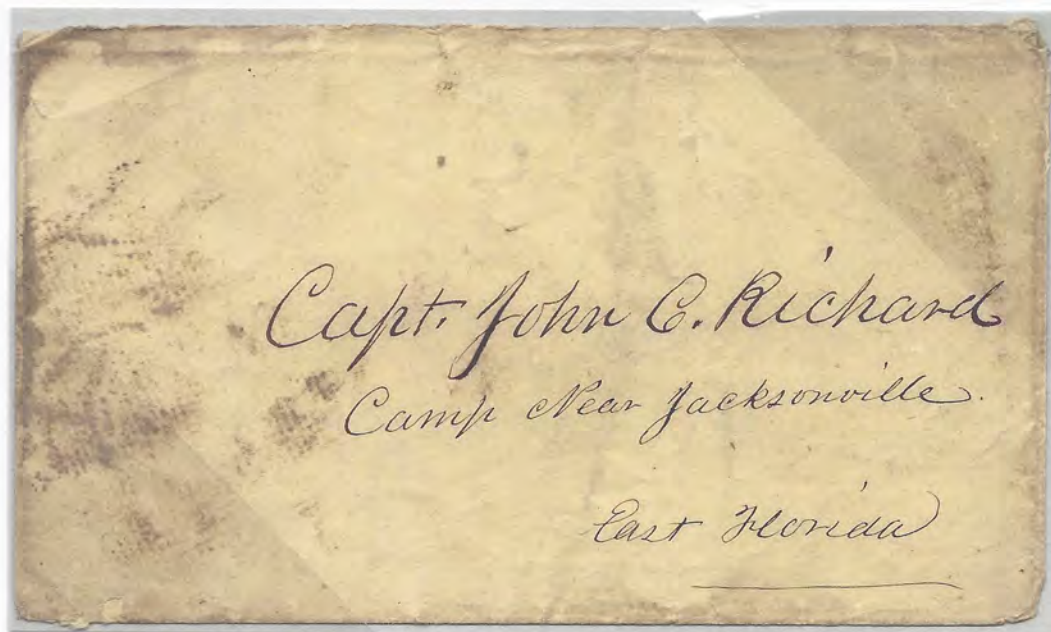 Capt. John C. Richard
Camp Near Jacksonville.
East Florida